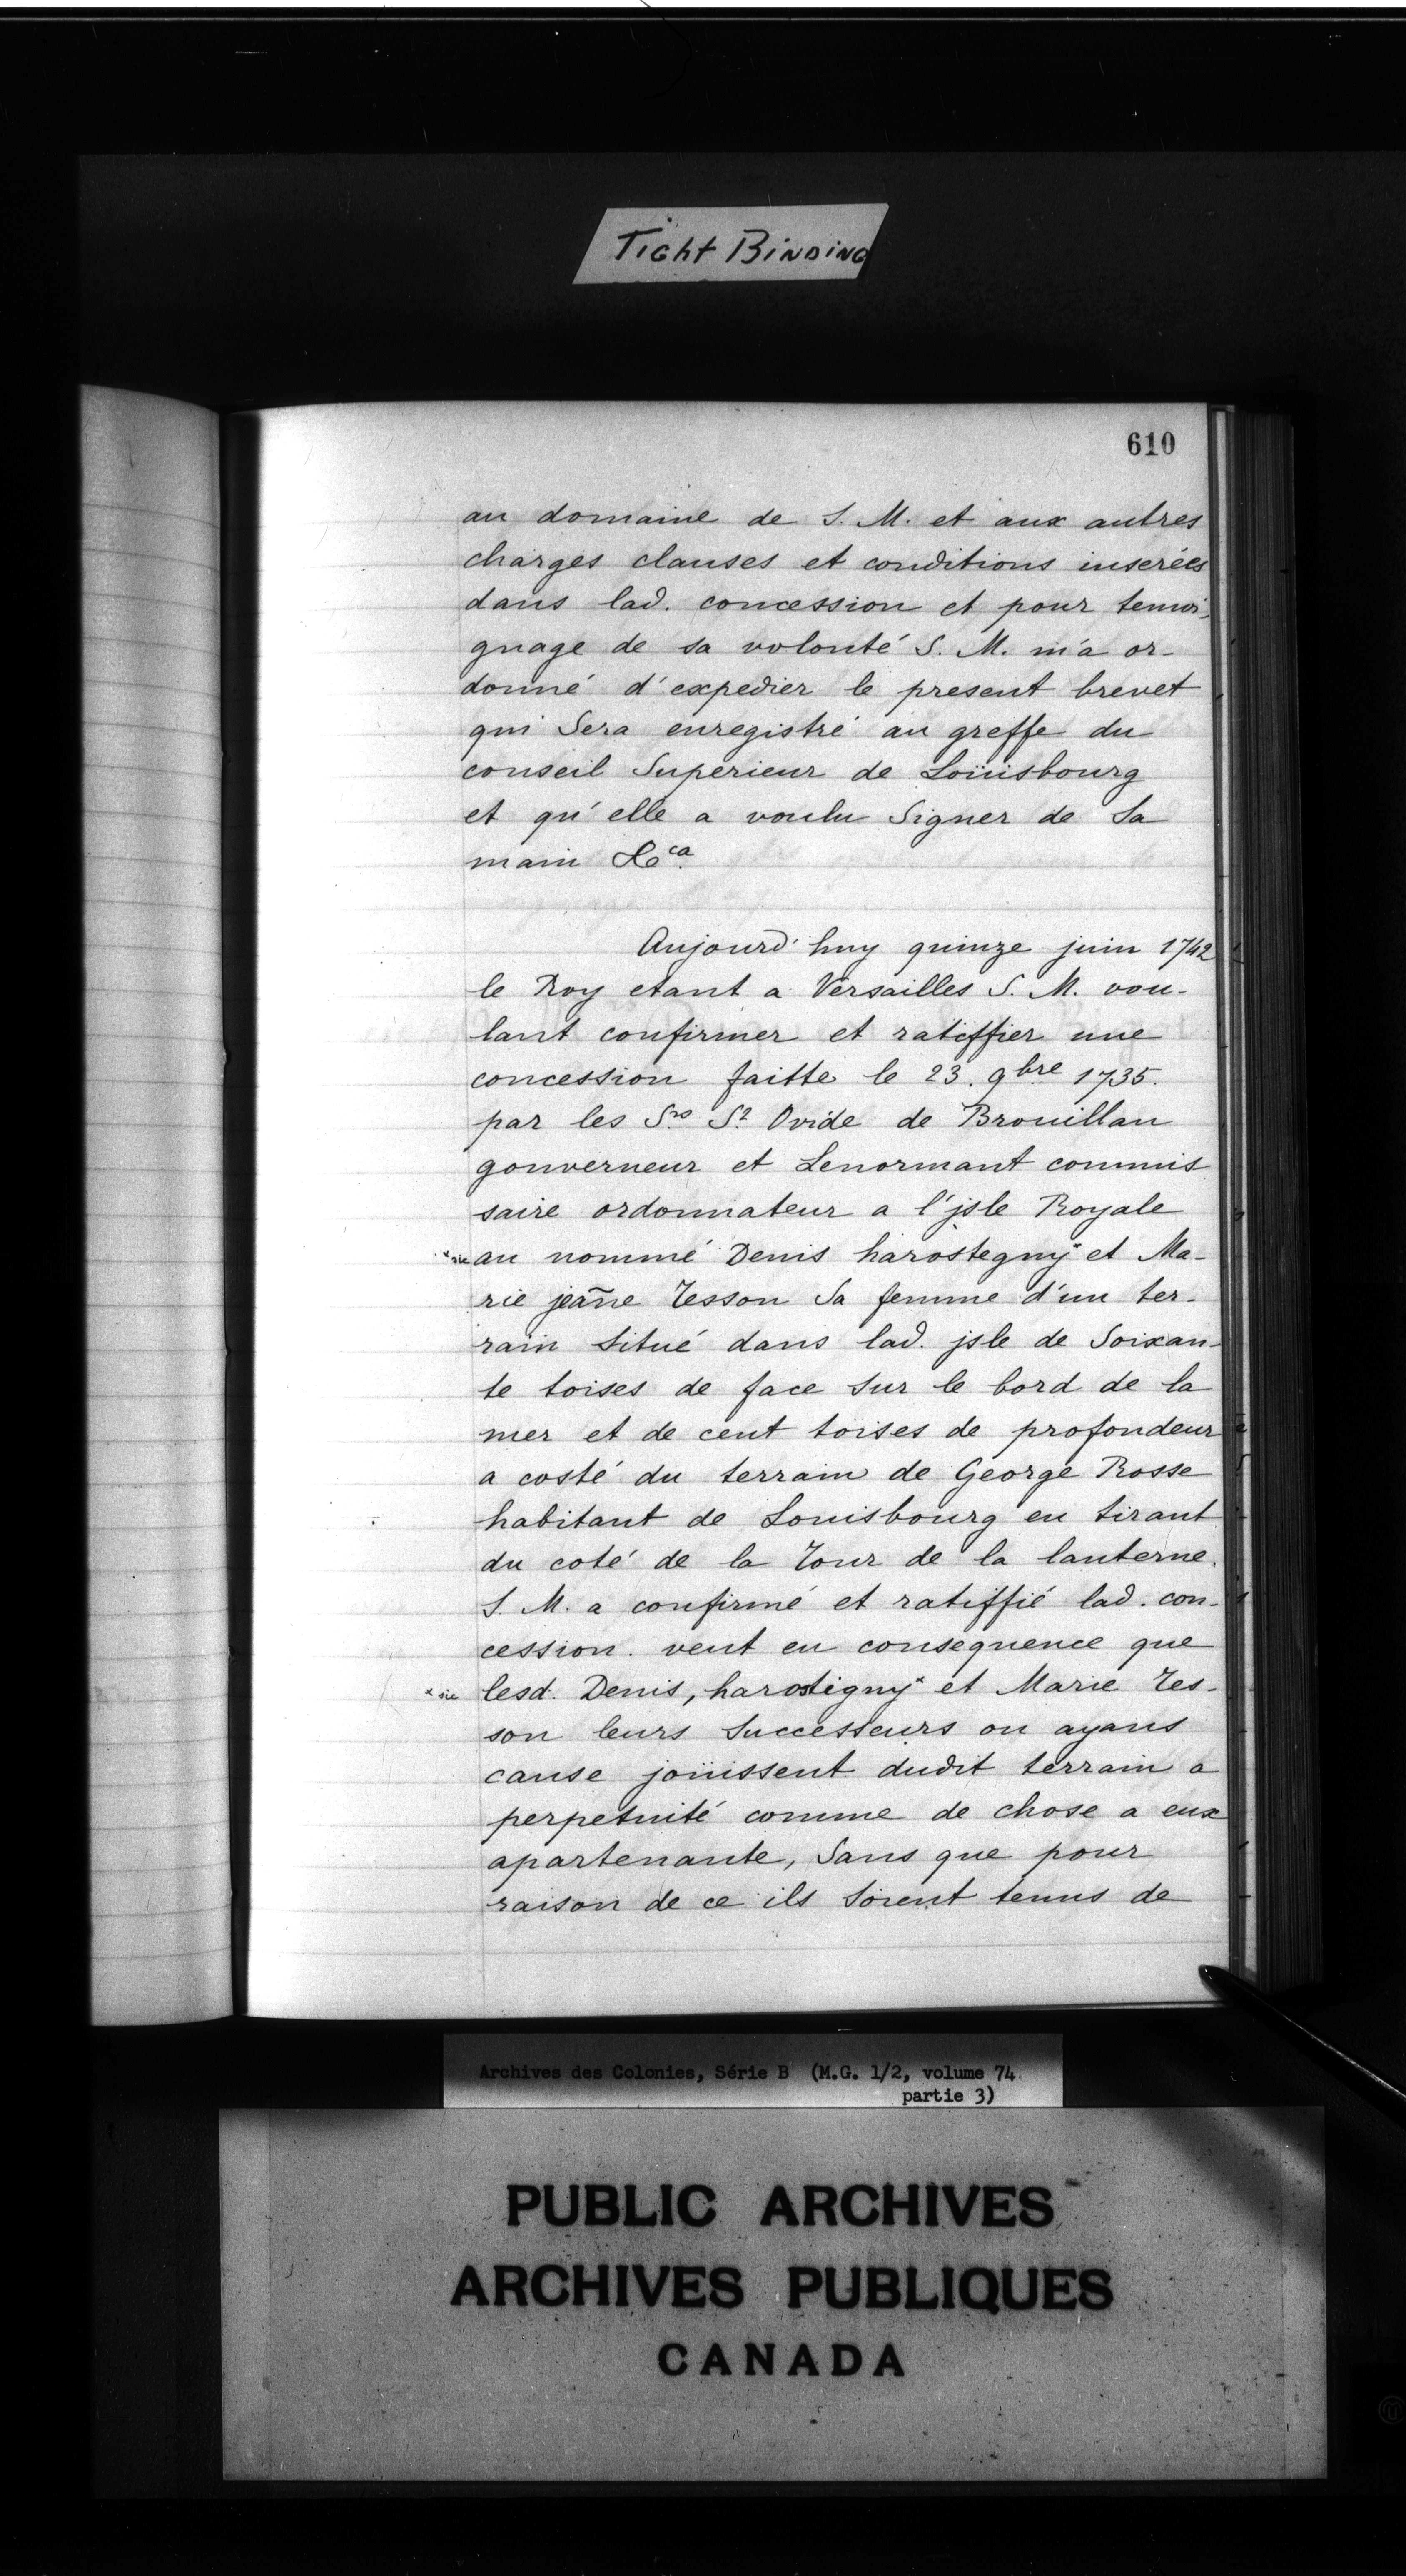 Tight Binding
610
au domaine de S. M. et aux autres
charges clauses et conditions inserées
dans lad. concession et pour temoi-
gnage de sa volonté S. M. m'a or-
donné d'expedier le present brevet
qui Sera enregistré au greffe du
conseil Superieur de Loüisbourg
et qu'elle a voulu Signer de Sa
main &c.a
Aujourd'huy quinze juin 1742
le Roy etant a Versailles S. M. vou-
lant confirmer et ratiffier une
concession faitte le 23. 9bre 1735.
par les Srs St Ovide de Brouillan
gouverneur et Lenormant commis
saire ordonnateur a l'jsle Royale
*sic au nommé Denis harostegny* et Ma-
rie jeañe Tesson Sa femme d'un ter-
rain Situé dans lad. jsle de Soixan-
te toises de face Sur le bord de la
mer et de cent toises de profondeur
a costé du terrain de George Rosse
habitant de Louisbourg en tirant
du coté de la Tour de la lanterne.
S. M. a confirmé et ratiffié lad. con-
cession. veut en consequence que
*sic lesd. Denis, harostigny* et Marie Tes-
son leurs Successeurs ou ayans
cause joüissent dudit terrain a
perpetuité comme de chose a eux
apartenante, Sans que pour
raison de ce ils Soient tenus de
Archives des Colonies, Série B (M.G. 1/2, volume 74
partie 3)
PUBLIC ARCHIVES
ARCHIVES PUBLIQUES
CANADA